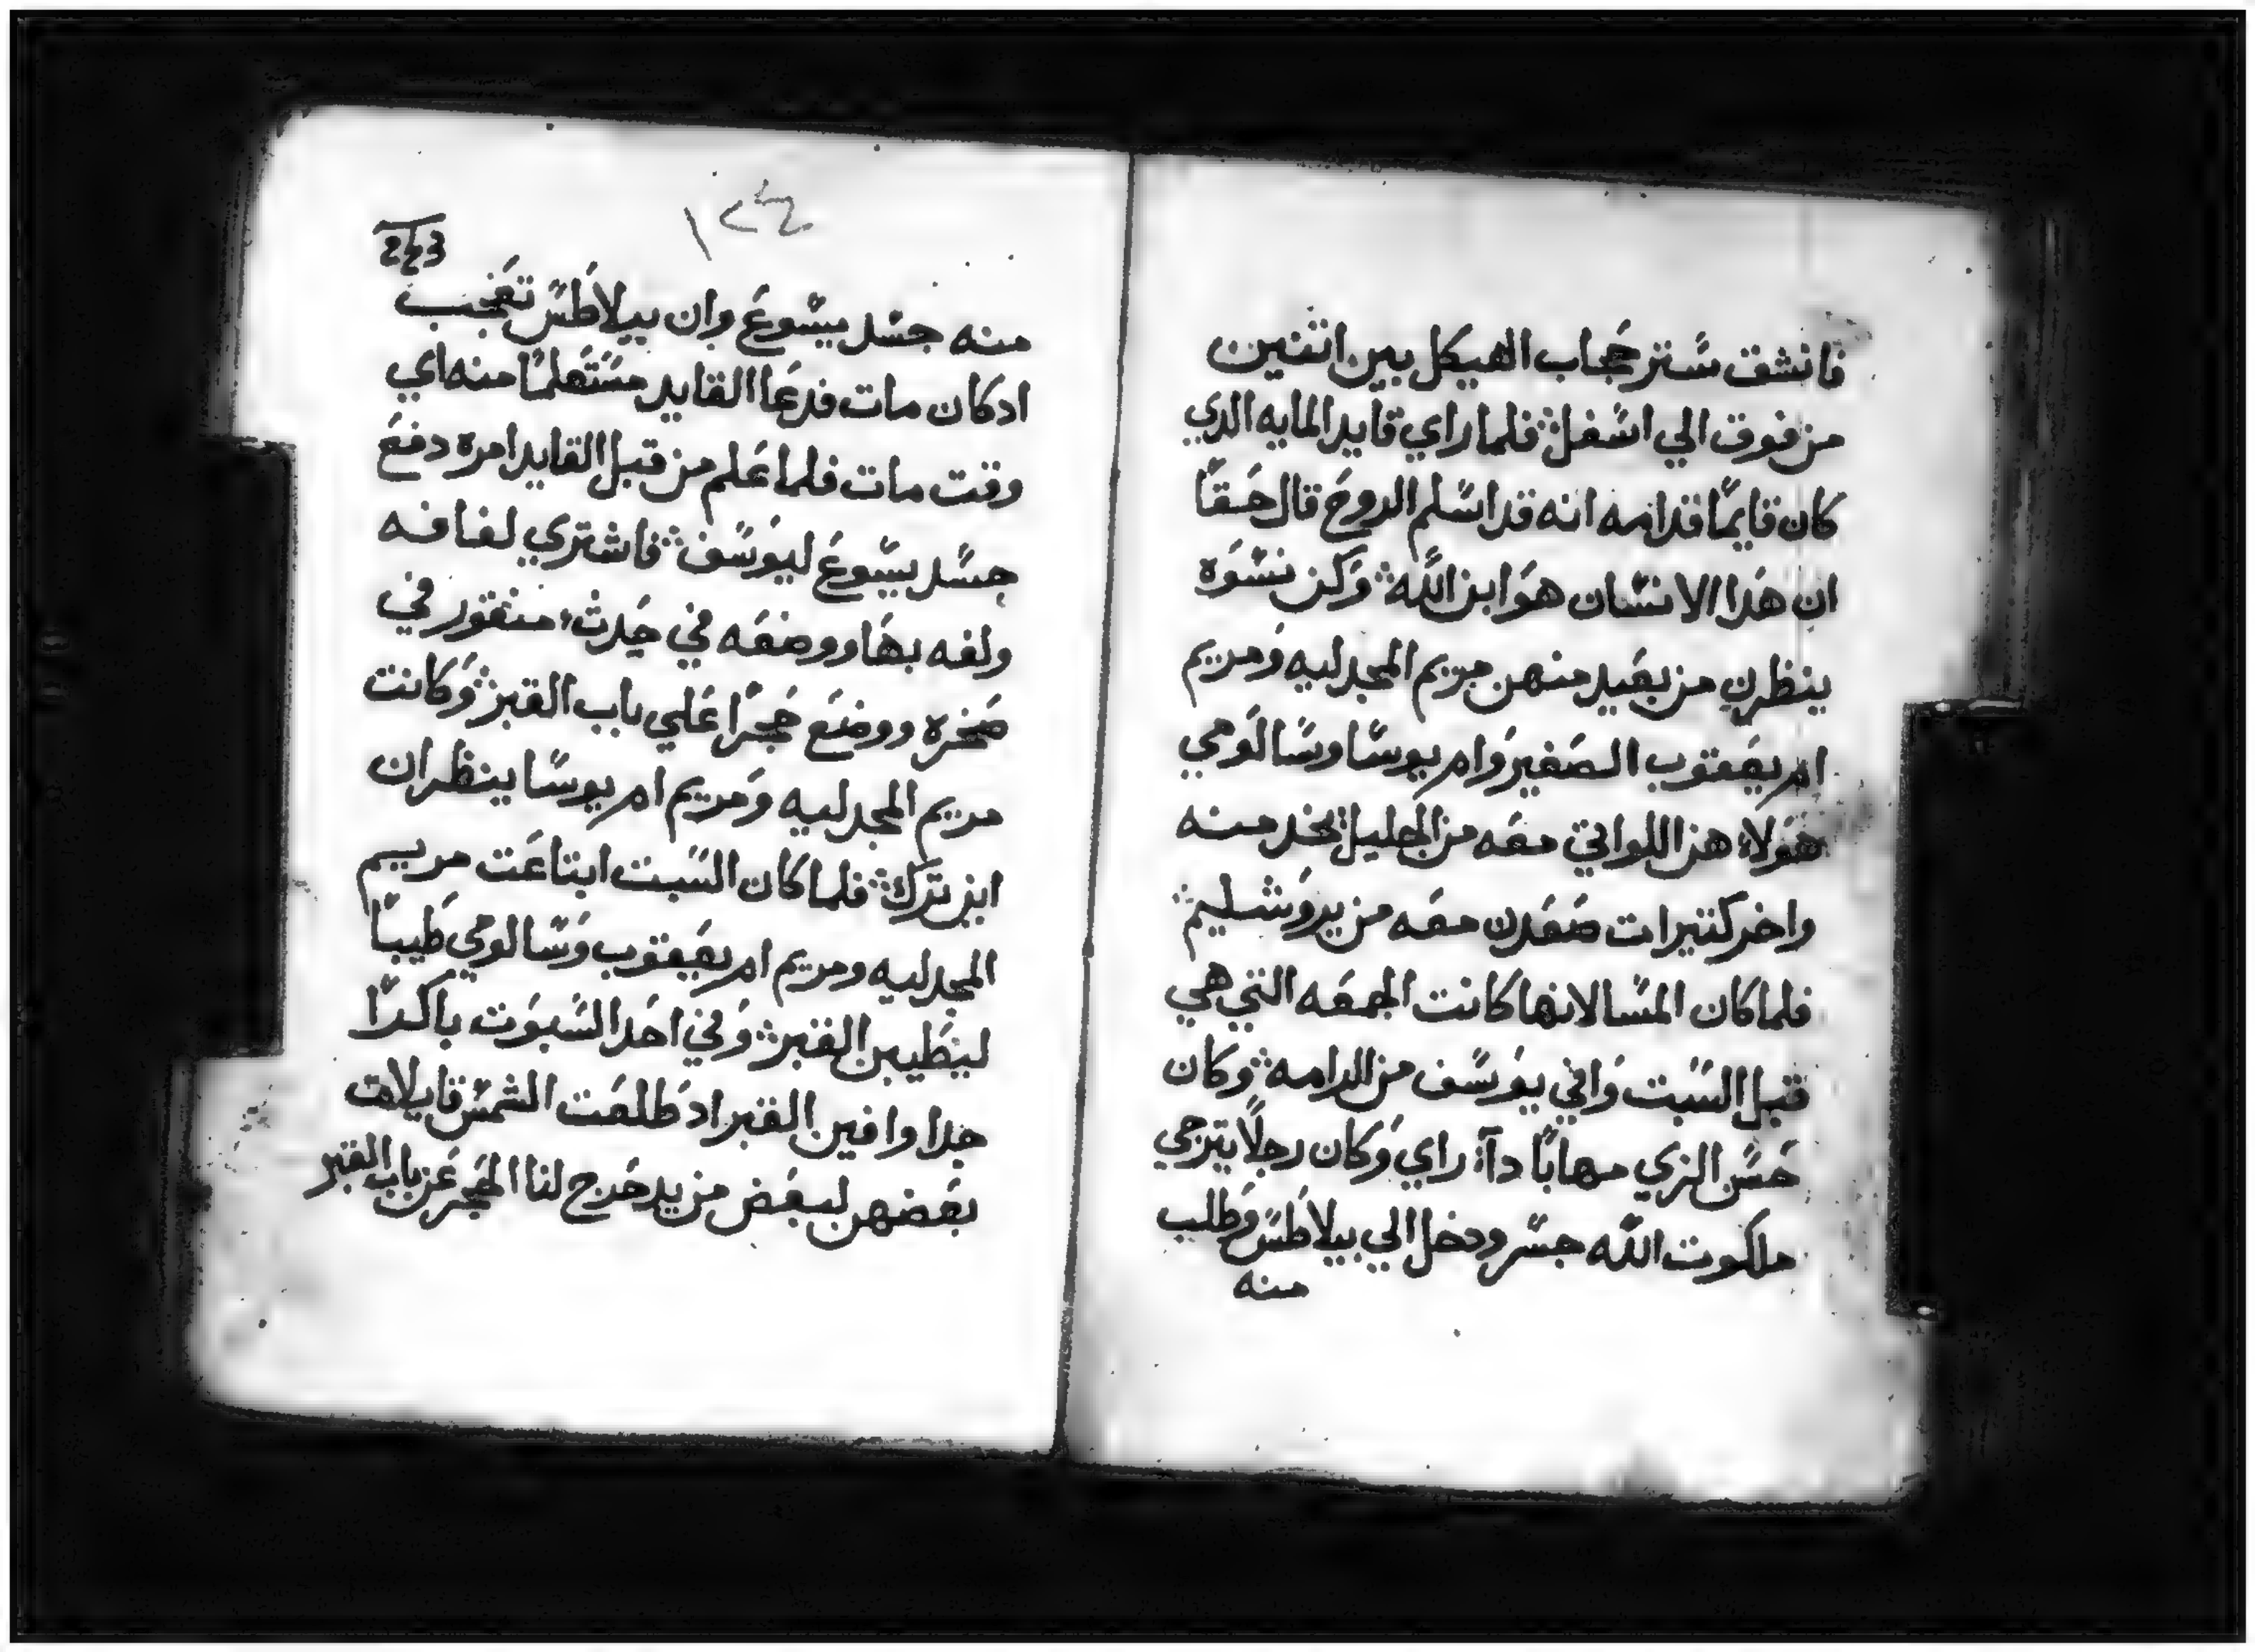 فانشق ستر حجاب الهيكل بين اثنين
من فوق الي اسفل فلما راي قايد المايه الدي
كان قايمًا قدامه انه قد اسلم الروح قال حقًا
ان هدا الانسان هو ابن الله وكن نسوه
ينظرن من بعيد منهن مريم المجدليه ومريم
ام يعقوب الصغير وام يوسا وسالومي
هولاء هن اللواتي معه من الجليل يخدمنه
واخر كتيرات صعدن معه من يروشليم
فلما كان المسا لانها كانت الجمعه التي هي
قبل السبت وافي يوسف من الرامه وكان
حسن الزي مهابًا دا راي وكان رجلًا يترجي
ملكوت الله جسر ودخل الي بيلاطس وطلب
منه
١٢٤
243
منه جسد يسوع وان بيلاطس تعجب
ادكان مات فدعا القايد مستعلمًا منه اي
وقت مات فلما علم من قبل القايد امره دفع
جسد يسوع ليوسف فاشتري لفافه
ولفه بها ووضعه في جدث منقور في
صخره ووضع حجرًا علي باب القبر وكانت
مريم المجدليه ومريم ام يوسا ينظران
اين ترك فلما كان السبت ابتاعت مريم
المجدليه ومريم ام يعقوب وسالومي طيبًا
ليطيبن القبر وفي احد السبوت باكرًا
جدا وافين القبر اد طلعت الشمس قايلات
بعضهن لبعض من يدحرج لنا الحجر عن باب القبر